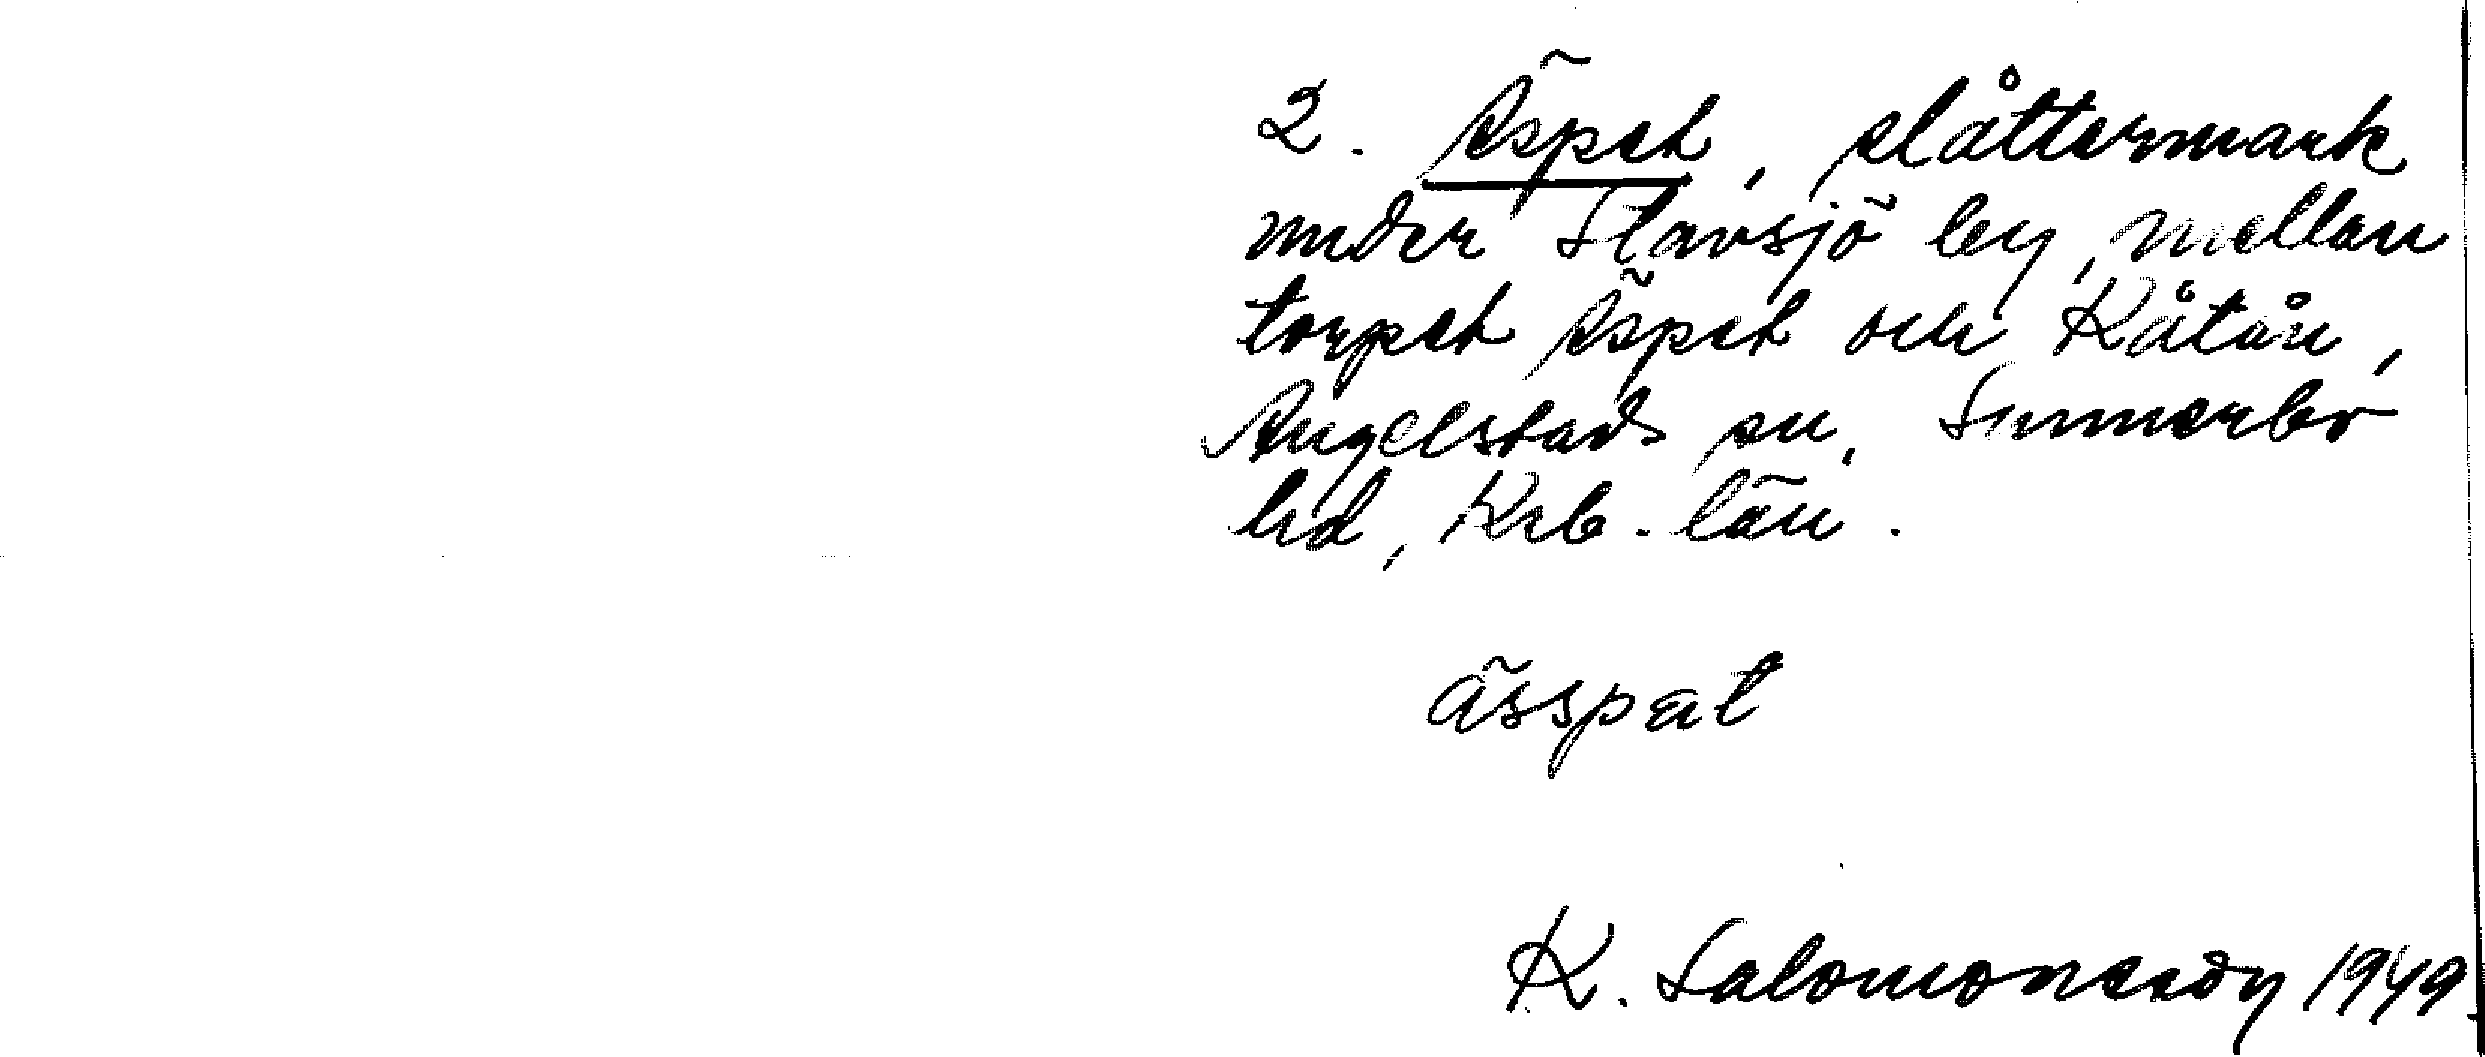 2. Äspet, slåttermark
under Slavsjö by, mellan
torpet Äspet och Kåtån,
Angelstads sn, Sunnerbo
hd, Krb. län.
ässpat
K. Salomonsson 1949.